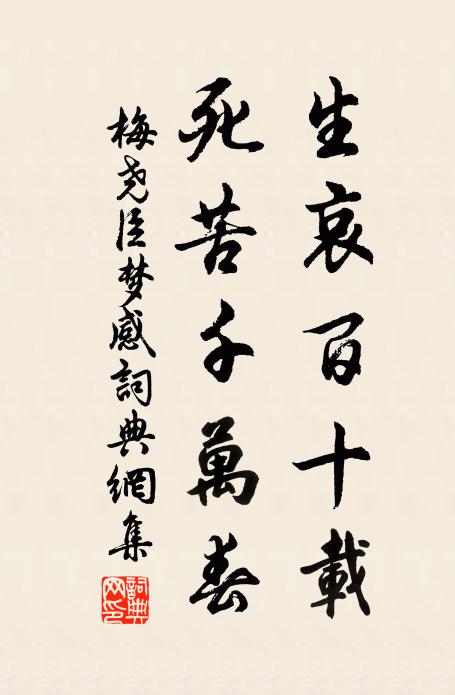 生哀百十載
死苦千萬春
梅尧臣梦感詞典網集
詞典网印